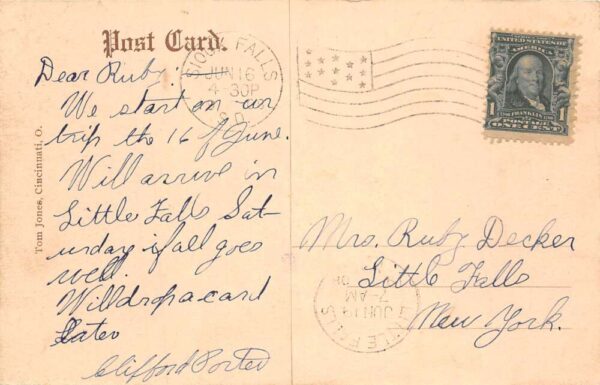 Post Card.
Dear Ruby:
We start on our
trip the 16 of June.
Will arrive in
Little Falls Sat-
urday if all goes
well.
Will drop a card
Later
Clifford Porter
Tom Jones, Cincinnati, O.
SIOUX FALLS
JUN 16
4-30P
S.D.
UNITED STATES OF AMERICA
FRANKLIN
1 1
POSTAGE
ONE CENT
Mrs. Ruby Decker
Little Falls
New York.
LITTLE FALLS
JUN 19
7-AM